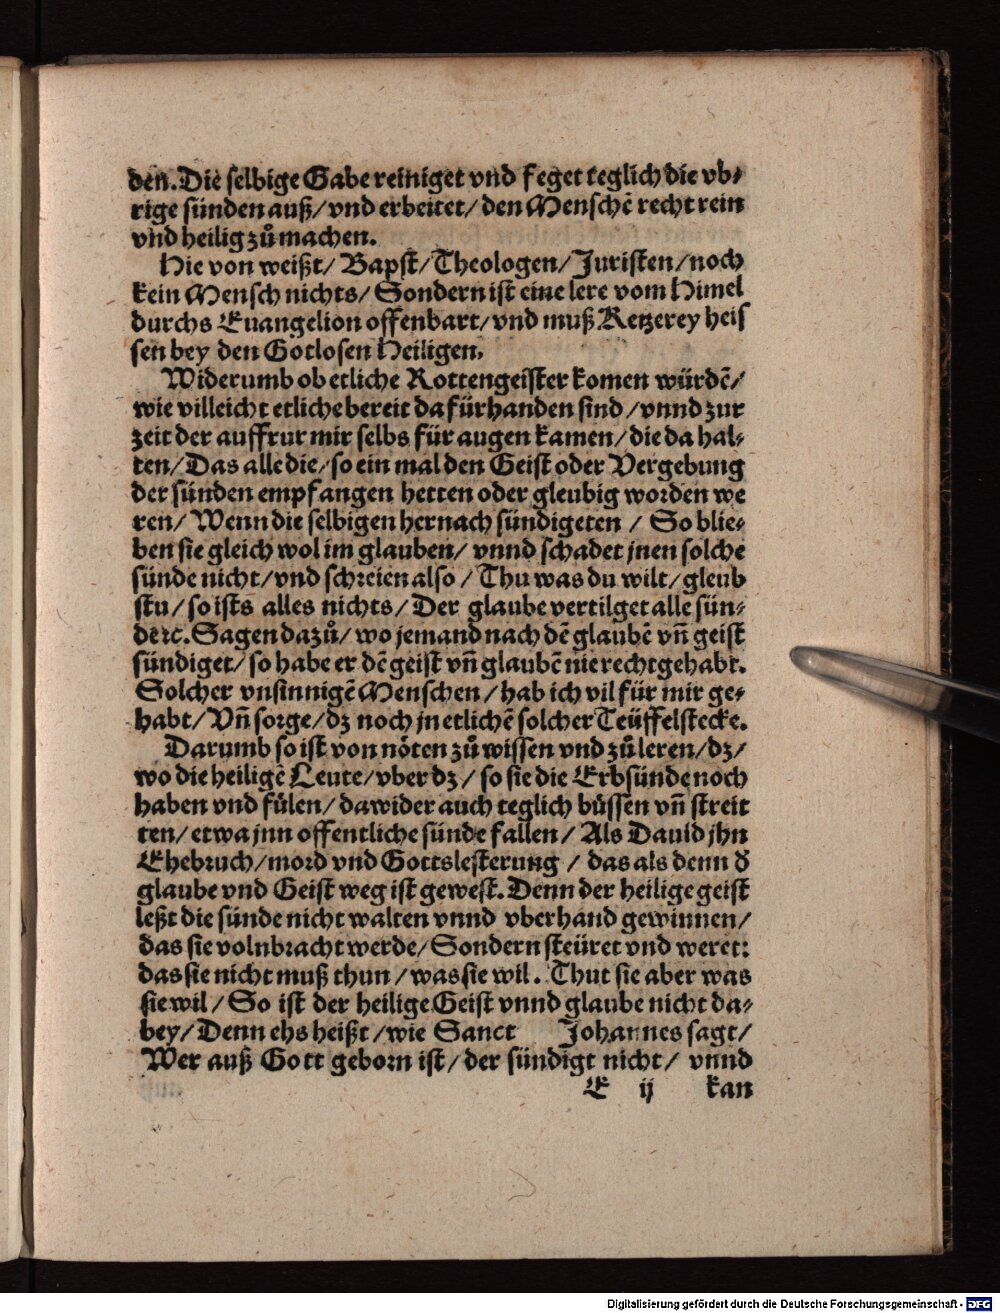 den. Die selbige Gabe reiniget vnd feget teglich die vb-
rige sünden auß/ vnd erbeitet/ den Menschē recht rein
vnd heilig zů machen.
Hie von weißt/ Bapst/ Theologen/ Juristen/ noch
kein Mensch nichts/ Sondern ist eine lere vom Himel
durchs Euangelion offenbart/ vnd muß Ketzerey heis
sen bey den Gotlosen Heiligen.
Widerumb ob etliche Rottengeister komen würdē/
wie villeicht etliche bereit da fürhanden sind/ vnnd zur
zeit der auffrur mir selbs für augen kamen/ die da hal-
ten/ Das alle die/ so ein mal den Geist oder Vergebung
der sünden empfangen hetten oder gleubig worden we
ren/ Wenn die selbigen hernach sündigeten/ So blie-
ben sie gleich wol im glauben/ vnnd schadet jnen solche
sünde nicht/ vnd schreien also/ Thu was du wilt/ gleub
stu/ so ists alles nichts/ Der glaube vertilget alle sün-
de ꝛc. Sagen dazů/ wo jemand nach dē glaubē vn̄ geist
sündiget/ so habe er dē geist vn̄ glaubē nie recht gehabt.
Solcher vnsinnigē Menschen/ hab ich vil für mir ge-
habt/ Vn̄ sorge/ dz noch jn etlichē solcher Teüffel stecke.
Darumb so ist von nöten zů wissen vnd zů leren/ dz/
wo die heiligē Leute/ vber dz/ so sie die Erbsünde noch
haben vnd fülen/ dawider auch teglich büssen vn̄ streit
ten/ etwa jnn offentliche sünde fallen/ Als Dauid jhn
Ehebruch/ mord vnd Gottslesterung/ das als denn d̄
glaube vnd Geist weg ist gewest. Denn der heilige geist
leßt die sünde nicht walten vnnd vberhand gewinnen/
das sie volnbracht werde/ Sondern steüret vnd weret:
das sie nicht muß thun/ was sie wil. Thut sie aber was
sie wil/ So ist der heilige Geist vnnd glaube nicht da-
bey/ Denn ehs heißt/ wie Sanct Johannes sagt/
Wer auß Gott geborn ist/ der sündigt nicht/ vnnd
E ij kan
Digitalisierung gefördert durch die Deutsche Forschungsgemeinschaft - DFG